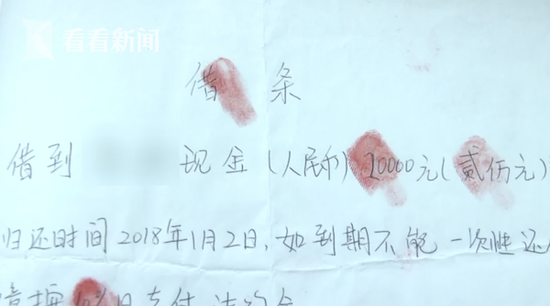 看看新闻
借条
借到 现金(人民币)20000元(贰伍元)
归还时间2018年1月2日,如到期不能一次性还
按 日支付违约金